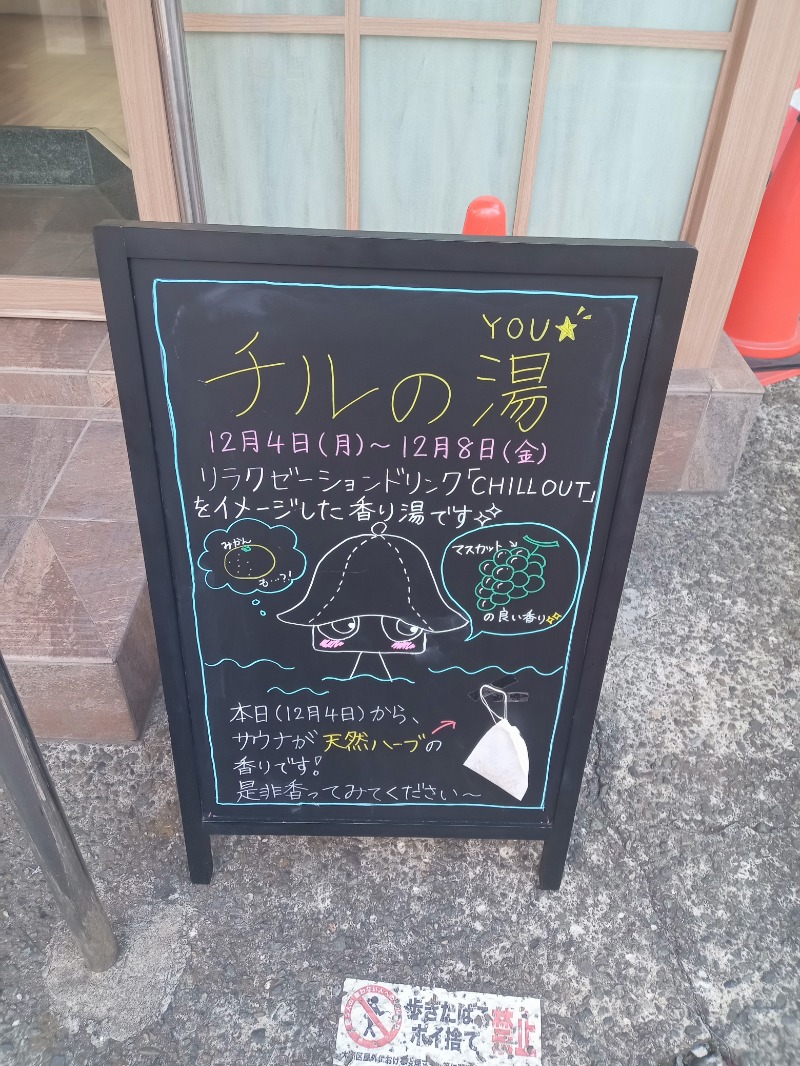 YOU
チルの湯
12月4日(月)～12月8日(金)
リラクゼーションドリンク「CHILL OUT」
をイメージした香り湯です
みかん
も…?!
マスカット
の良い香り
本日(12月4日)から、
サウナが天然ハーブの
香りです!
是非香ってみてください～
歩きたばこ
ポイ捨て
禁止